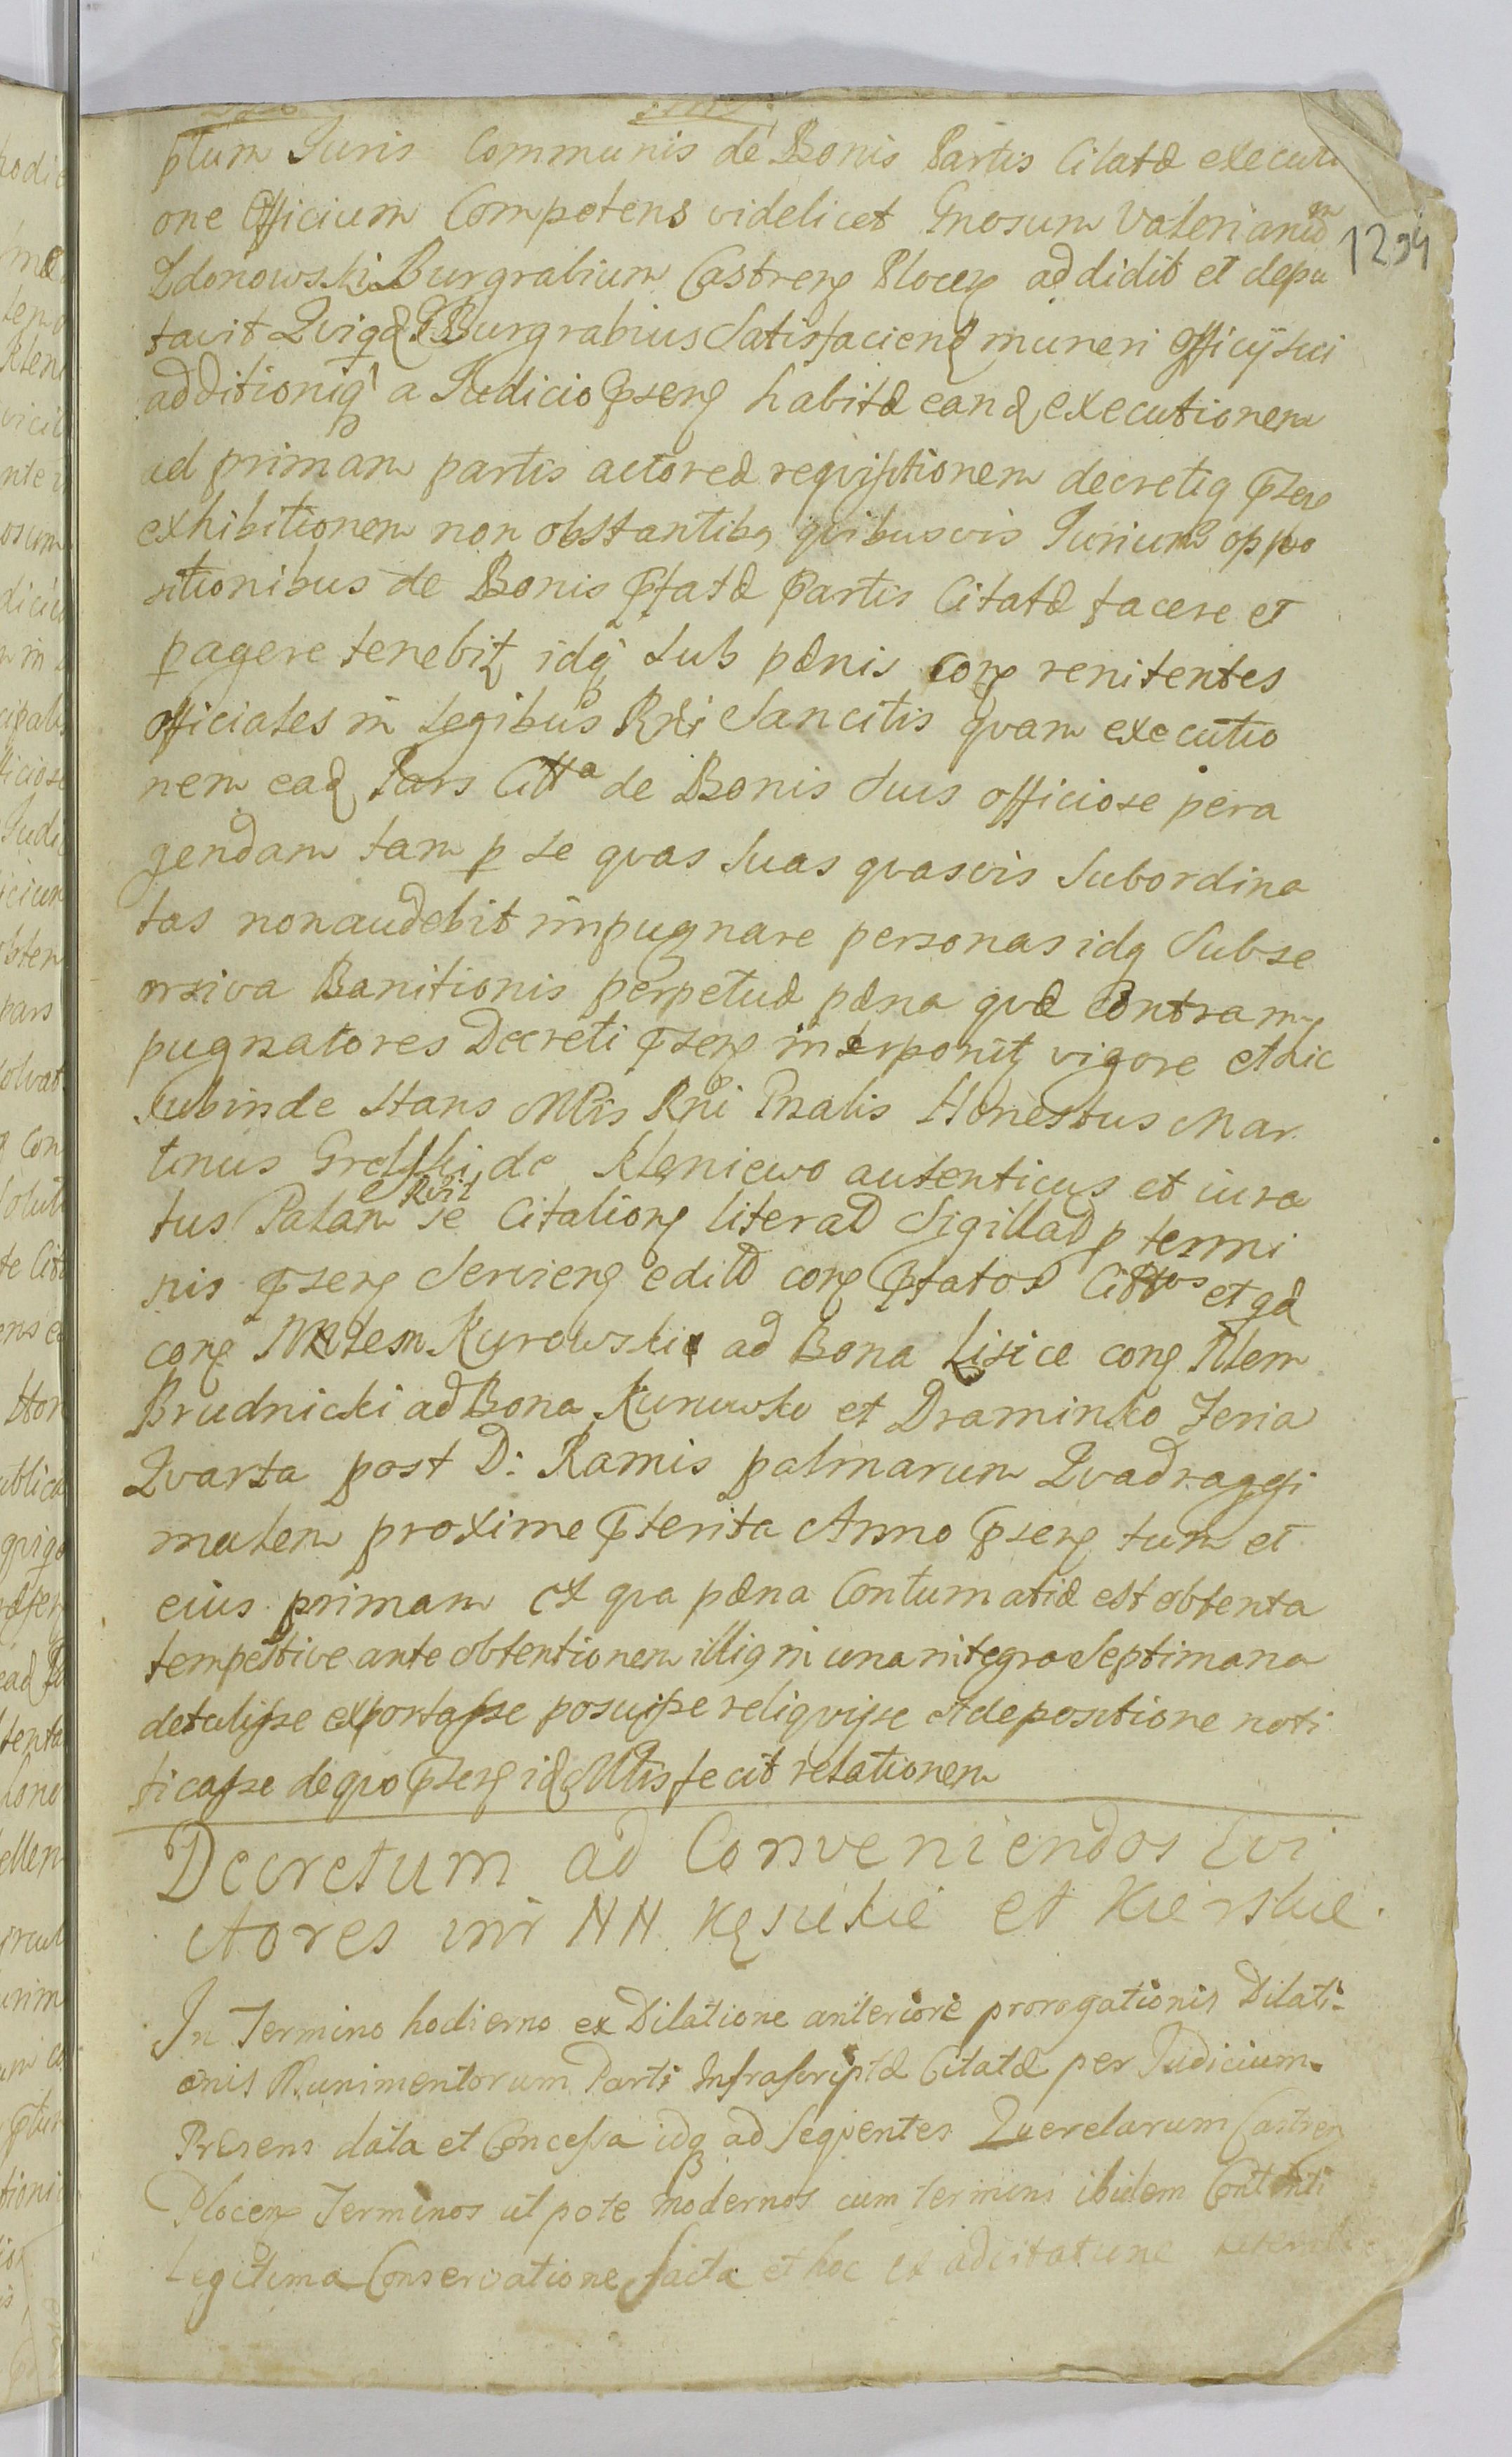 ptum Juris Communis de Bonis Partis Citatæ executi
one Officium Competens videlicet Gnosum Valerianum
Zdonowski Burgrabium Castreng Ploceng addidit et depu
tavit Quiqd Burgrabius Satisfaciend muneri Officij sui
additioniq a Judicio Pnseng habitæ eand executionem
ad primam partis actoreæ reqvisitionem decretiq pnseng
exhibitionem non obstantibq qvibusvis Jurium oppo
sitionibus de Bonis Pfatæ Partis Citatæ facere et
pagere tenebit idq sub pænis cong renitentes
officiales in Legibus Rni Sancitis qvam executio
nem eadq Pars Citta de Bonis Suis officiose pera
gendam tam p se qvas suas qvasvis Subordina
tas non audebit impugnare personas idq Sub se
orsiva Banitionis perpetuæ pæna qvæ Contra im
pugnatores Decreti pnseng interponit vigore et hic
Subinde Stans Mtis Rni Gnalis Honestus Mar
tinus Grelski de Kleniewo autenticus et iura
tus Palam Se Citationg literas Sigillas p termi
nis pnseng Servieng edit cong Pfatos Cittos et qd
cong Mlem Kurowski ad Bona Lisice cong Nlem
Brudnicki ad Bona Kurowko et Draminko Feria
Qvarta post D: Ramis palmarum Qvadragesi
malem proxime Pterita Anno pnseng tum et
eius primam ex qva pæna Contumatiæ est obtenta
tempestive ante obtentionem illiq in una integra Septimana
detulisse exportasse posuisse reliqvisse et depositione noti
ficasse de qvo pnseng idq Mtis fecit relationem
Decretum ad Conveniendos Evi
ctores inr NN. Kęsickie et Kierskie.
In Termino hodierno ex Dilatione anteriore prorogationis Dilati-
onis Munimentorum Parti Infrascriptæ Citatæ per Judicium
Præsens data et Concessa idq ad Seqventes Querelarum Castren
Plocen Terminos utpote modernos cum terminis ibidem Contenti
Legitima Conservatione facta et hoc ex adcitatione
1294